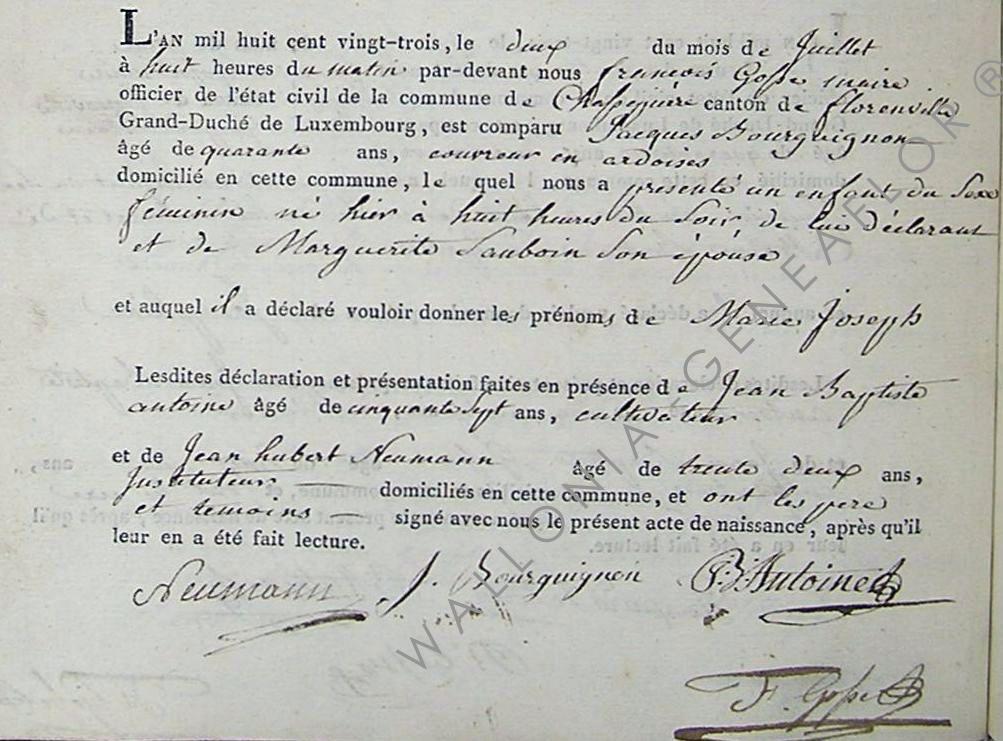 L'AN mil huit cent vingt-trois, le deux du mois de Juillet
à huit heures du matin par-devant nous françois Gosse maire
officier de l'état civil de la commune de Chassepierre canton de florenville
Grand-Duché de Luxembourg, est comparu Jacques Bourguignon
âgé de quarante ans, couvreur en ardoises
domicilié en cette commune, le quel nous a présenté un enfant du Sexe
féminin né hier à huit heures du Soir, de lui déclarant
et de Marguerite Sauboin Son épouse
et auquel il a déclaré vouloir donner les prénoms de Marie Joseph
Lesdites déclaration et présentation faites en présence de Jean Baptiste
antoine âgé de cinquante sept ans, cultivateur
et de Jean hubert Neumann âgé de trente deux ans,
Instituteur domiciliés en cette commune, et ont les pere
et temoins signé avec nous le présent acte de naissance, après qu'il
leur en a été fait lecture.
Neumann J. Bourguignon JB Antoine
F. Gosse
WALLONIA GENEAFLOR ®